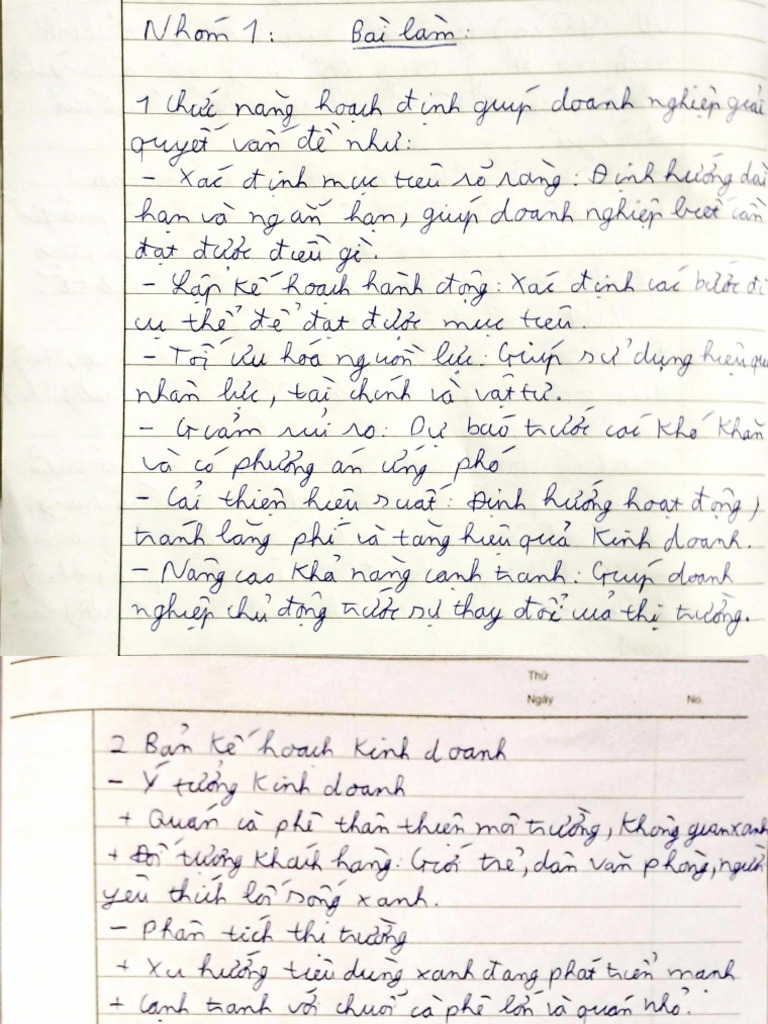 Nhóm 1: Bài làm:
1 Chức năng hoạch định giúp doanh nghiệp giải
quyết vấn đề như:
- Xác định mục tiêu rõ ràng: Định hướng dài
hạn và ngắn hạn, giúp doanh nghiệp biết cần
đạt được điều gì.
- Lập kế hoạch hành động: Xác định các bước đi
cụ thể để đạt được mục tiêu.
- Tối ưu hoá nguồn lực: Giúp sử dụng hiệu quả
nhân lực, tài chính và vật tư.
- Giảm rủi ro: Dự báo trước các khó khăn
và có phương án ứng phó
- Cải thiện hiệu suất: Định hướng hoạt động,
tránh lãng phí và tăng hiệu quả kinh doanh.
- Nâng cao khả năng cạnh tranh: Giúp doanh
nghiệp chủ động trước sự thay đổi của thị trường.
Thứ
Ngày No.
2 Bản kế hoạch kinh doanh
- Ý tưởng kinh doanh
+ Quán cà phê thân thiện môi trường, không gian xanh
+ Đối tượng khách hàng: Giới trẻ, dân văn phòng, người
yêu thích lối sống xanh.
- Phân tích thị trường
+ Xu hướng tiêu dùng xanh đang phát triển mạnh
+ Cạnh tranh với chuỗi cà phê lớn và quán nhỏ.